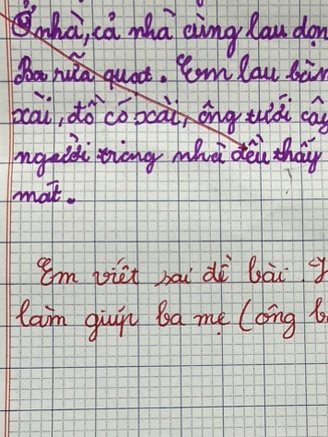 Ở nhà, cả nhà cùng lau dọn
Ba rửa quạt. Em lau bàn
xài, đồ có xài, ông tưới cây
người trong nhà đều thấy
mát.
Em viết sai đề bài.
làm giúp ba mẹ (ông b